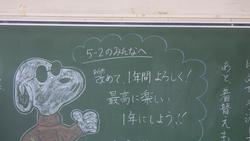 5-2のみんなへ
改めて、1年間よろしく!
最高に楽しい
1年にしよう!!
あと、着替え